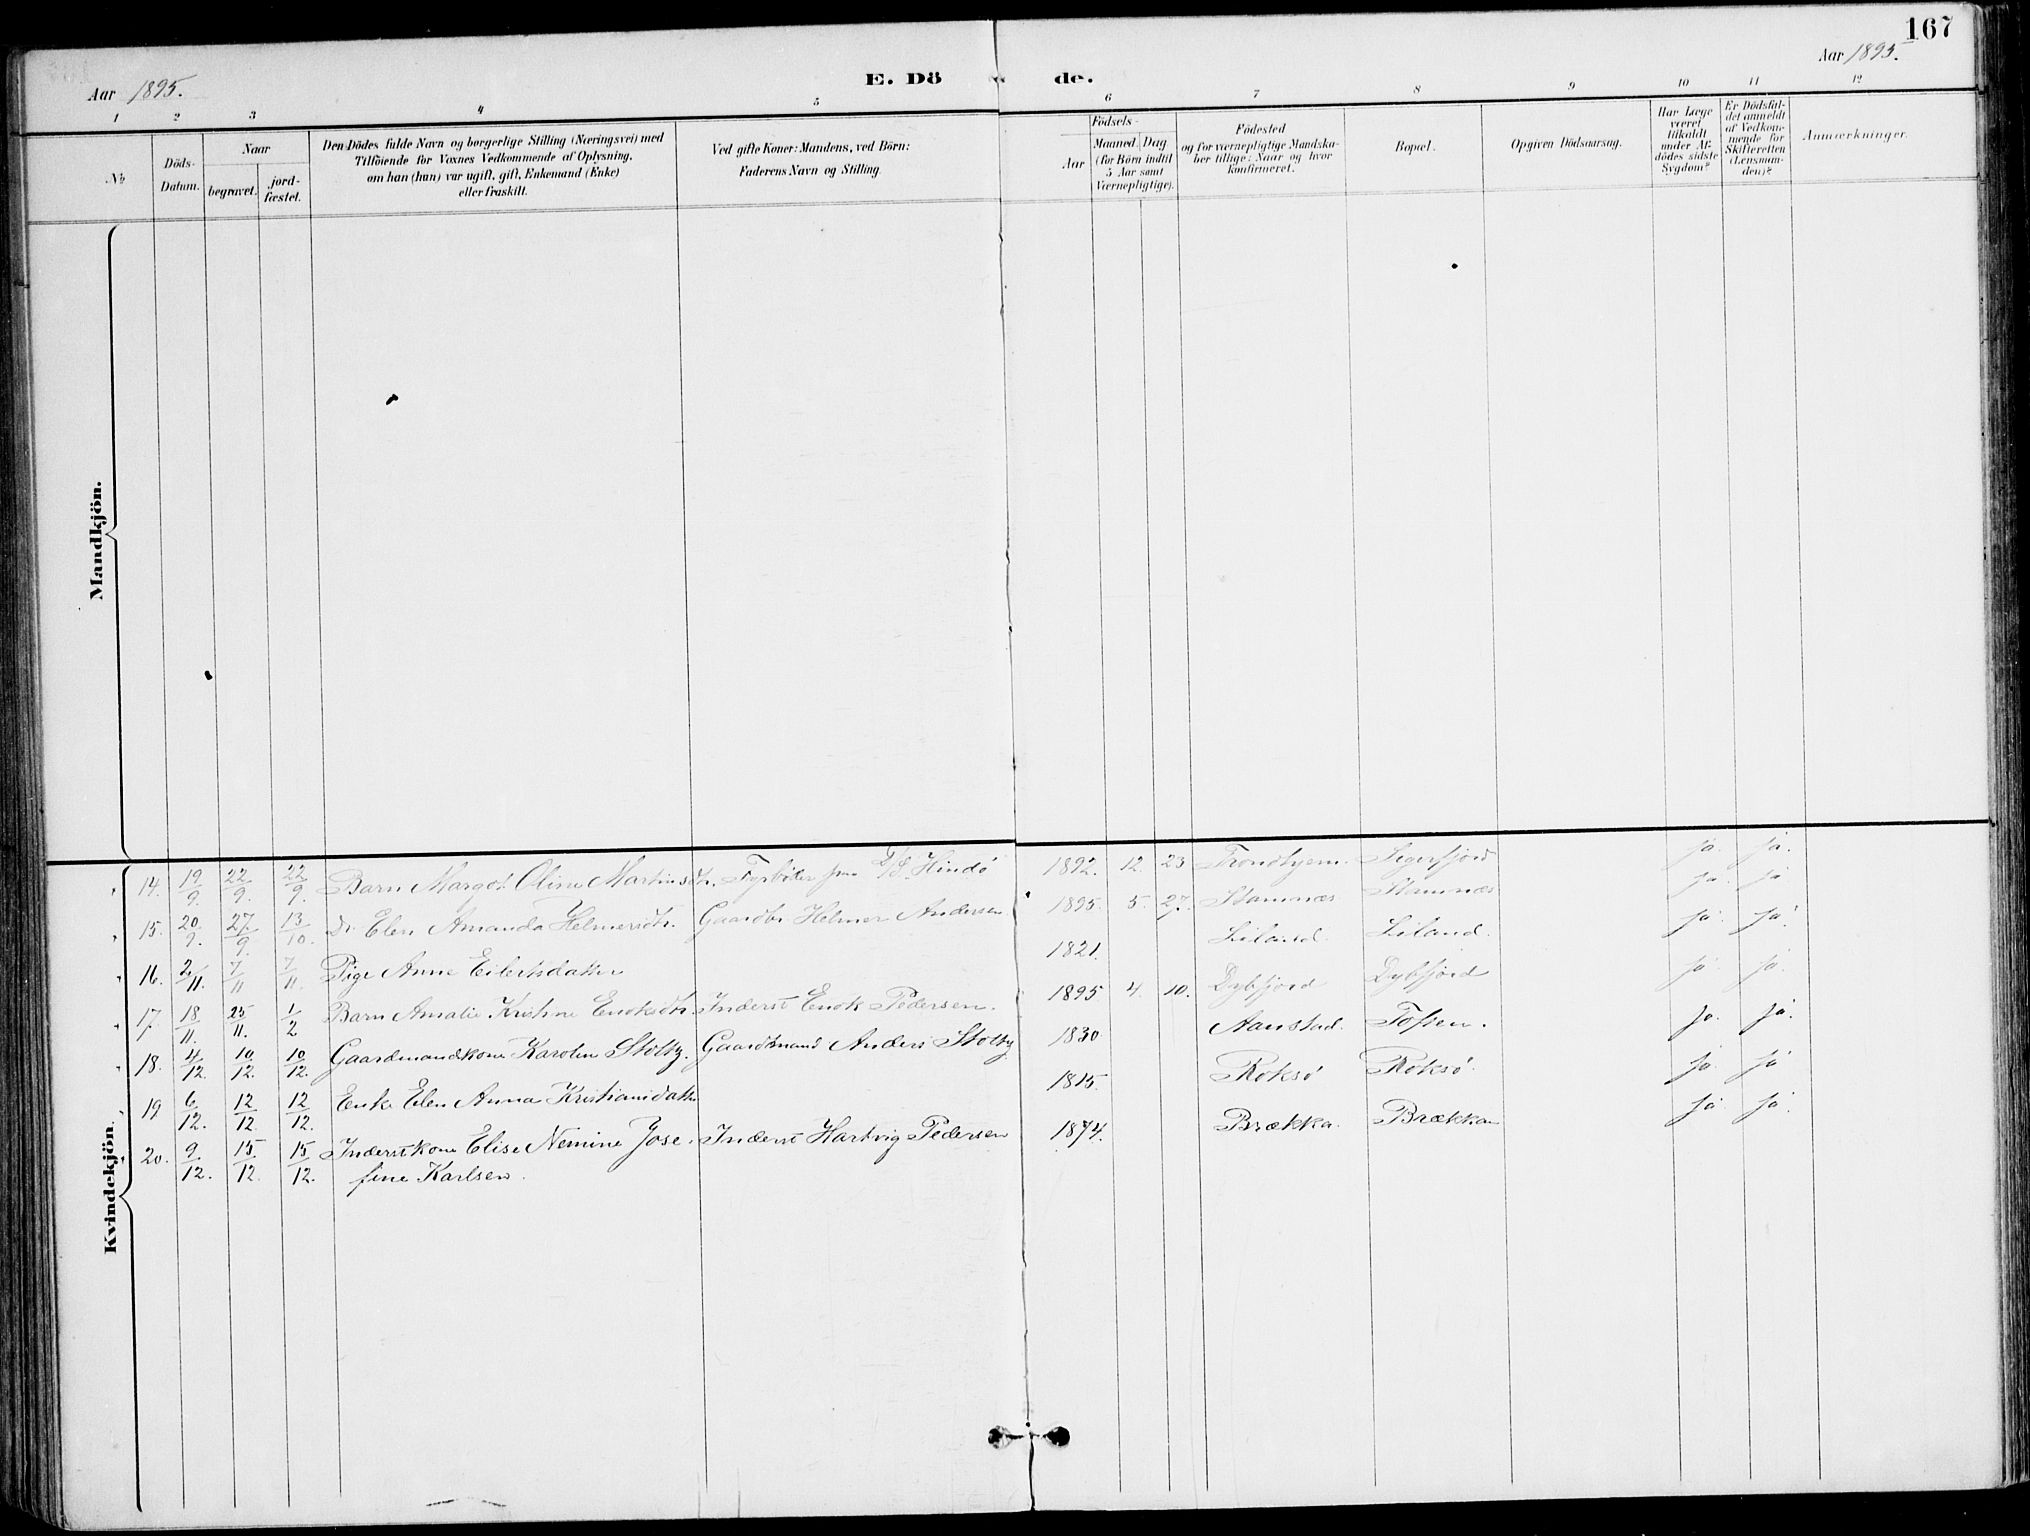 167
Aar 1895. E. Dö de. Aar 1895.
1 2 3 4 5 6 7 8 9 10 11 12
No
Döds-Datum.
Naar
begravet.
jord-fæstet.
Den Dödes fulde Navn og borgerlige Stilling (Næringsvei) med
Tilföiende for Voxnes Vedkommende af Oplysning,
om han (hun) var ugift, gift, Enkemand (Enke)
eller fraskilt.
Ved gifte Koner: Mandens, ved Börn:
Faderens Navn og Stilling.
Födsels-
Aar
Maaned. Dag
(for Börn indtil
5 Aar samt
Værnepligtige).
Födested
og for værnepligtige Mandska-
ber tillige: Naar og hvor
konfirmeret.
Bopæl.
Opgiven Dödsaarsag.
Har Læge
været
tilkaldt
under Af-
dödes sidste
Sygdom?
Er Dödsfal-
det anmeldt
af Vedkom-
mende for
Skifteretten
(Lensman-
den)?
Anmærkninger.
Mandkjön.
Kvindekjön.
14. 19/9. 22/9. 22/9. Barn Margot Oline Martinsdtr. Fyrböter D/S. Hindö 1892. 12. 23 Trondhjem. Sigerfjord ja. ja.
15. 20/9. 27/9. 13/10. Do Elen Amanda Helmersdtr. Gaardbr. Helmer Andersen 1895. 5. 27. Stamnæs Stamnæs ja. ja
16. 2/11. 7/11 7/11. Pige Anne Eilertsdatter 1821. Liland. Liland. ja. ja.
17. 18/11. 25/11. 1/2 Barn Amalie Kristine Enoksdtr. Inderst Enok Pedersen. 1895 4. 10. Dybfjord Dybfjord ja. ja.
18. 4/12. 10/12. 10/12. Gaardmandskone Karoline Stoltz. Gaardmand Anders Stoltz 1830 Aanstad. Tofsen. ja. ja.
19 6/12. 12/12. 12/12. Enke Elen Anna Kristiansdatter 1815. Roksö Roksö. ja. ja
20. 9/12. 15/12. 15/12. Inderstkone Elise Nemine Jose- Inderst Hartvig Pedersen 1874. Brækka. Brækkan ja. ja.
fine Karlsen.